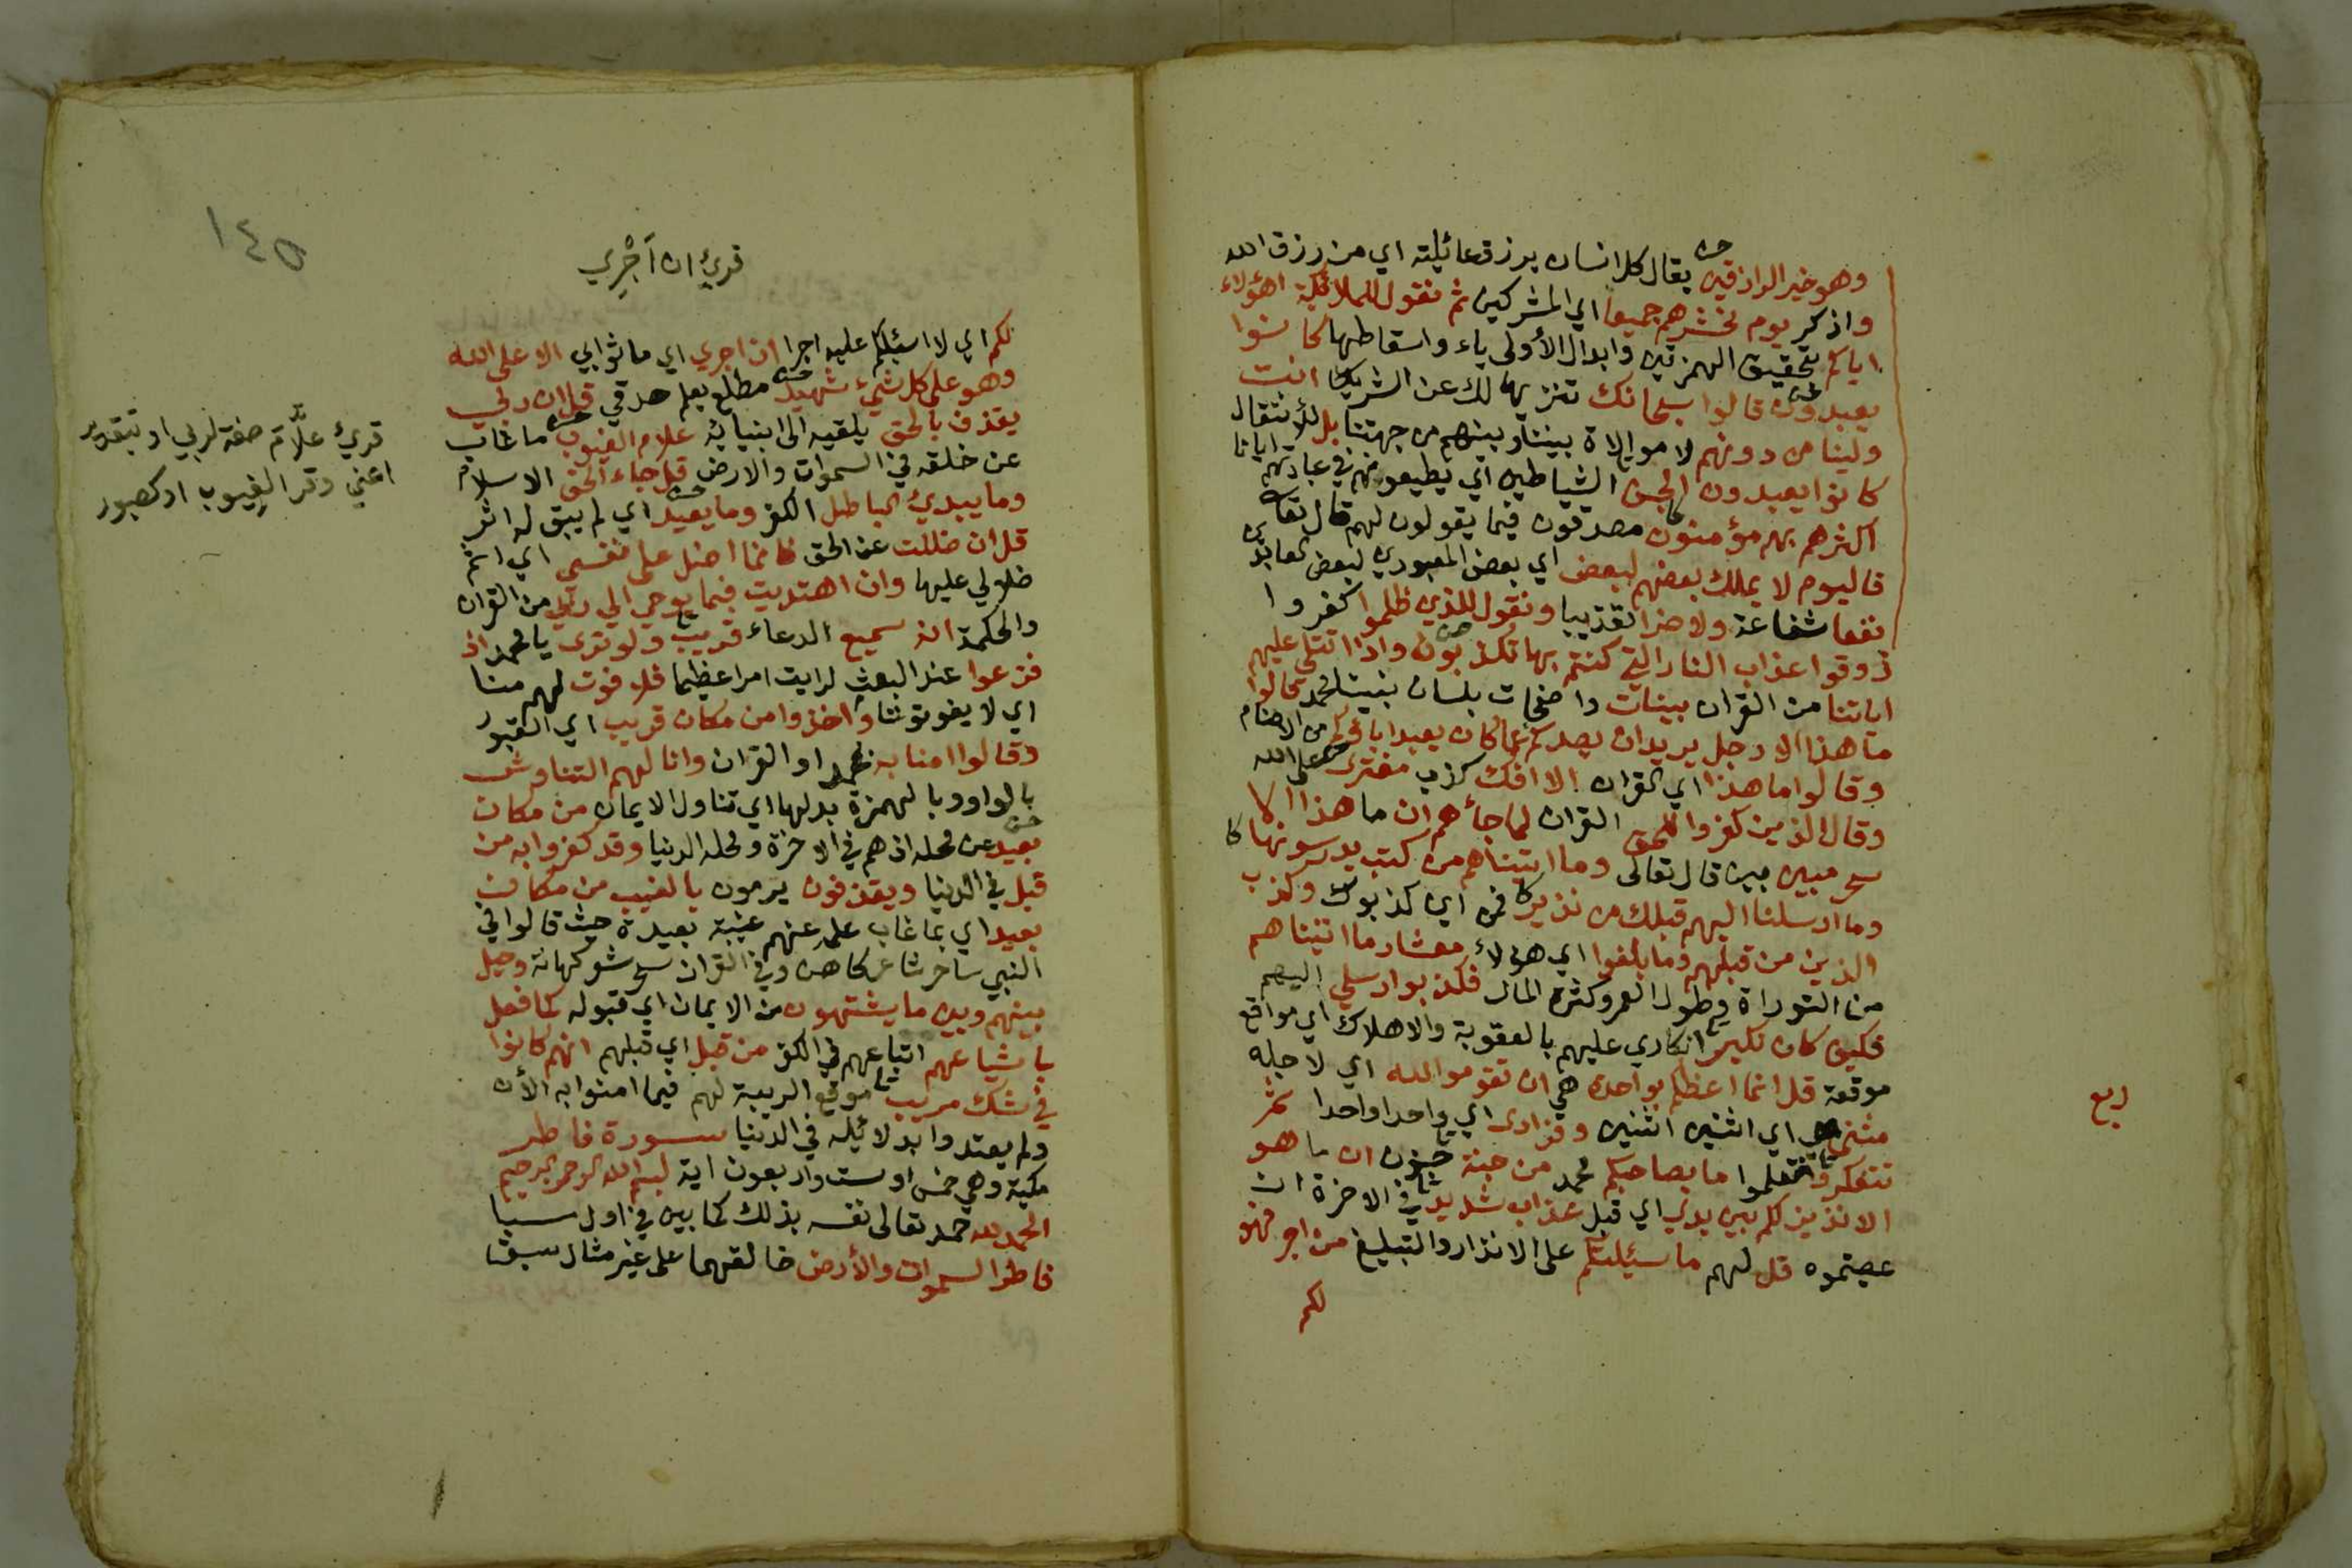 وهو خير الرازقين يقال كل انسان يرزق عائيلته اي من رزق الله
واذكر يوم نحشرهم جميعا اي المشركين ثم نقول للملائكة اهؤلاء
اياكم بتحقيق الهمزتين وابدال الأولى ياء واسقاطها كانوا
يعبدون قالوا سبحانك تنزيها لك عن الشريك انت
ولينا من دونهم لا موالاة بيننا وبينهم من جهتنا بل للأنتقال
كانوا يعبدون الجن الشياطين اي يطيعونهم في عبادتهم ايانا
اكثرهم بهم مؤمنون مصدقون فيما يقولون لهم قال تعا
فاليوم لا يملك بعضهم لبعض اي بعض المعبودين لبعض العابدين
نفعا شفاعة ولا ضرا تعذيبا ونقول للذين ظلموا كفروا
ذوقوا عذاب النار التي كنتم بها تكذبون واذا تتلى عليهم
اياتنا من القران بينات واضحات بلسان نبينا محمد قالوا
ما هذا الا رجل يريد ان يصدكم عما كان يعبد اباؤكم من الاصنام
وقالوا ما هذا اي القران الا افك كذب مفترى على الله
وقال الذين كفروا للحق القران لما جأهم ان ما هذا الا
سحر مبين بين قال تعالى وما اتيناهم من كتب يدرسونها
وما ارسلنا اليهم قبلك من نذير فمن اين كذبوك وكذب
الذين من قبلهم وما بلغوا اي هؤلاء معشار ما اتيناهم
من التوراة وطول العمر وكثرة المال فكذبوا رسلي اليهم
فكيف كان نكير انكاري عليهم بالعقوبة والاهلاك اي مواقع
موقعة قل انما اعظكم بواحدة هي ان تقوموا لله اي لاجله
مثنى اي اثنين اثنين وفرادى اي واحدا واحدا ثم
تتفكروا فتعلموا ما بصاحبكم محمد من جنة جنون ان ما هو
الا نذير لكم بين يدي اي قبل عذاب شديد في الاخرة ان
عصيتموه قل لهم ما سئيلتكم على الانذار والتبليغ من اجر فهو
لكم
ربع
١٤٥
قرئ ان آجْرِي
لكم اي لا اسئيلكم عليه اجرا ان اجري اي ما ثوابي الا على الله
وهو على كل شيء شهيد مطلع يعلم صدقي قل ان ربي
يقذف بالحق يلقيه الى انبيائه علام الغيوب ما غاب
عن خلقه في السموات والارض قل جاء الحق الاسلام
وما يبدئ الباطل الكفر وما يعيد اي لم يبق له اثر
قل ان ضللت عن الحق فانما اضل على نفسي اي اثم
ضلالي عليها وان اهتديت فبما يوحي الي ربي من القران
والحكمة انه سميع الدعاء قريب ولو ترى يا محمد اذ
فزعوا عند البعث لرايت امرا عظيما فلا فوت لهم منا
اي لا يفوتوننا واخذوا من مكان قريب اي القبور
وقالوا امنا به بمحمد او القران وانا لهم التناوش
بالواو وبالهمزة بدلها اي تناول الايمان من مكان
بعيد عن محله اذ هم في الاخرة ومحله الدنيا وقد كفروا به من
قبل في الدنيا ويقذفون يرمون بالغيب من مكان
بعيد اي بما غاب علمه عنهم غيبة بعيدة حيث قالوا في
النبي ساحر شاعر كاهن وفي القران سحر شعر كهانة وحيل
بينهم وبين ما يشتهون من الايمان اي قبوله كما فعل
باشياعهم اتباعهم في الكفر من قبل اي قبلهم انهم كانوا
في شك مريب موقع الريبة لهم فيما امنوا به الأن
ولم يعتدوا بدلائيله في الدنيا سورة فاطر
مكية وهي خمس او ست واربعون اية بسم الله الرحمن الرحيم
الحمد لله حمد تعالى نفسه بذلك كما بين في اول سبا
فاطر السموات والأرض خالقهما على غير مثال سبق
قرئ علَّامَ صفة لربي او بتقدير
اعني وقر الغِيوب او كصبور